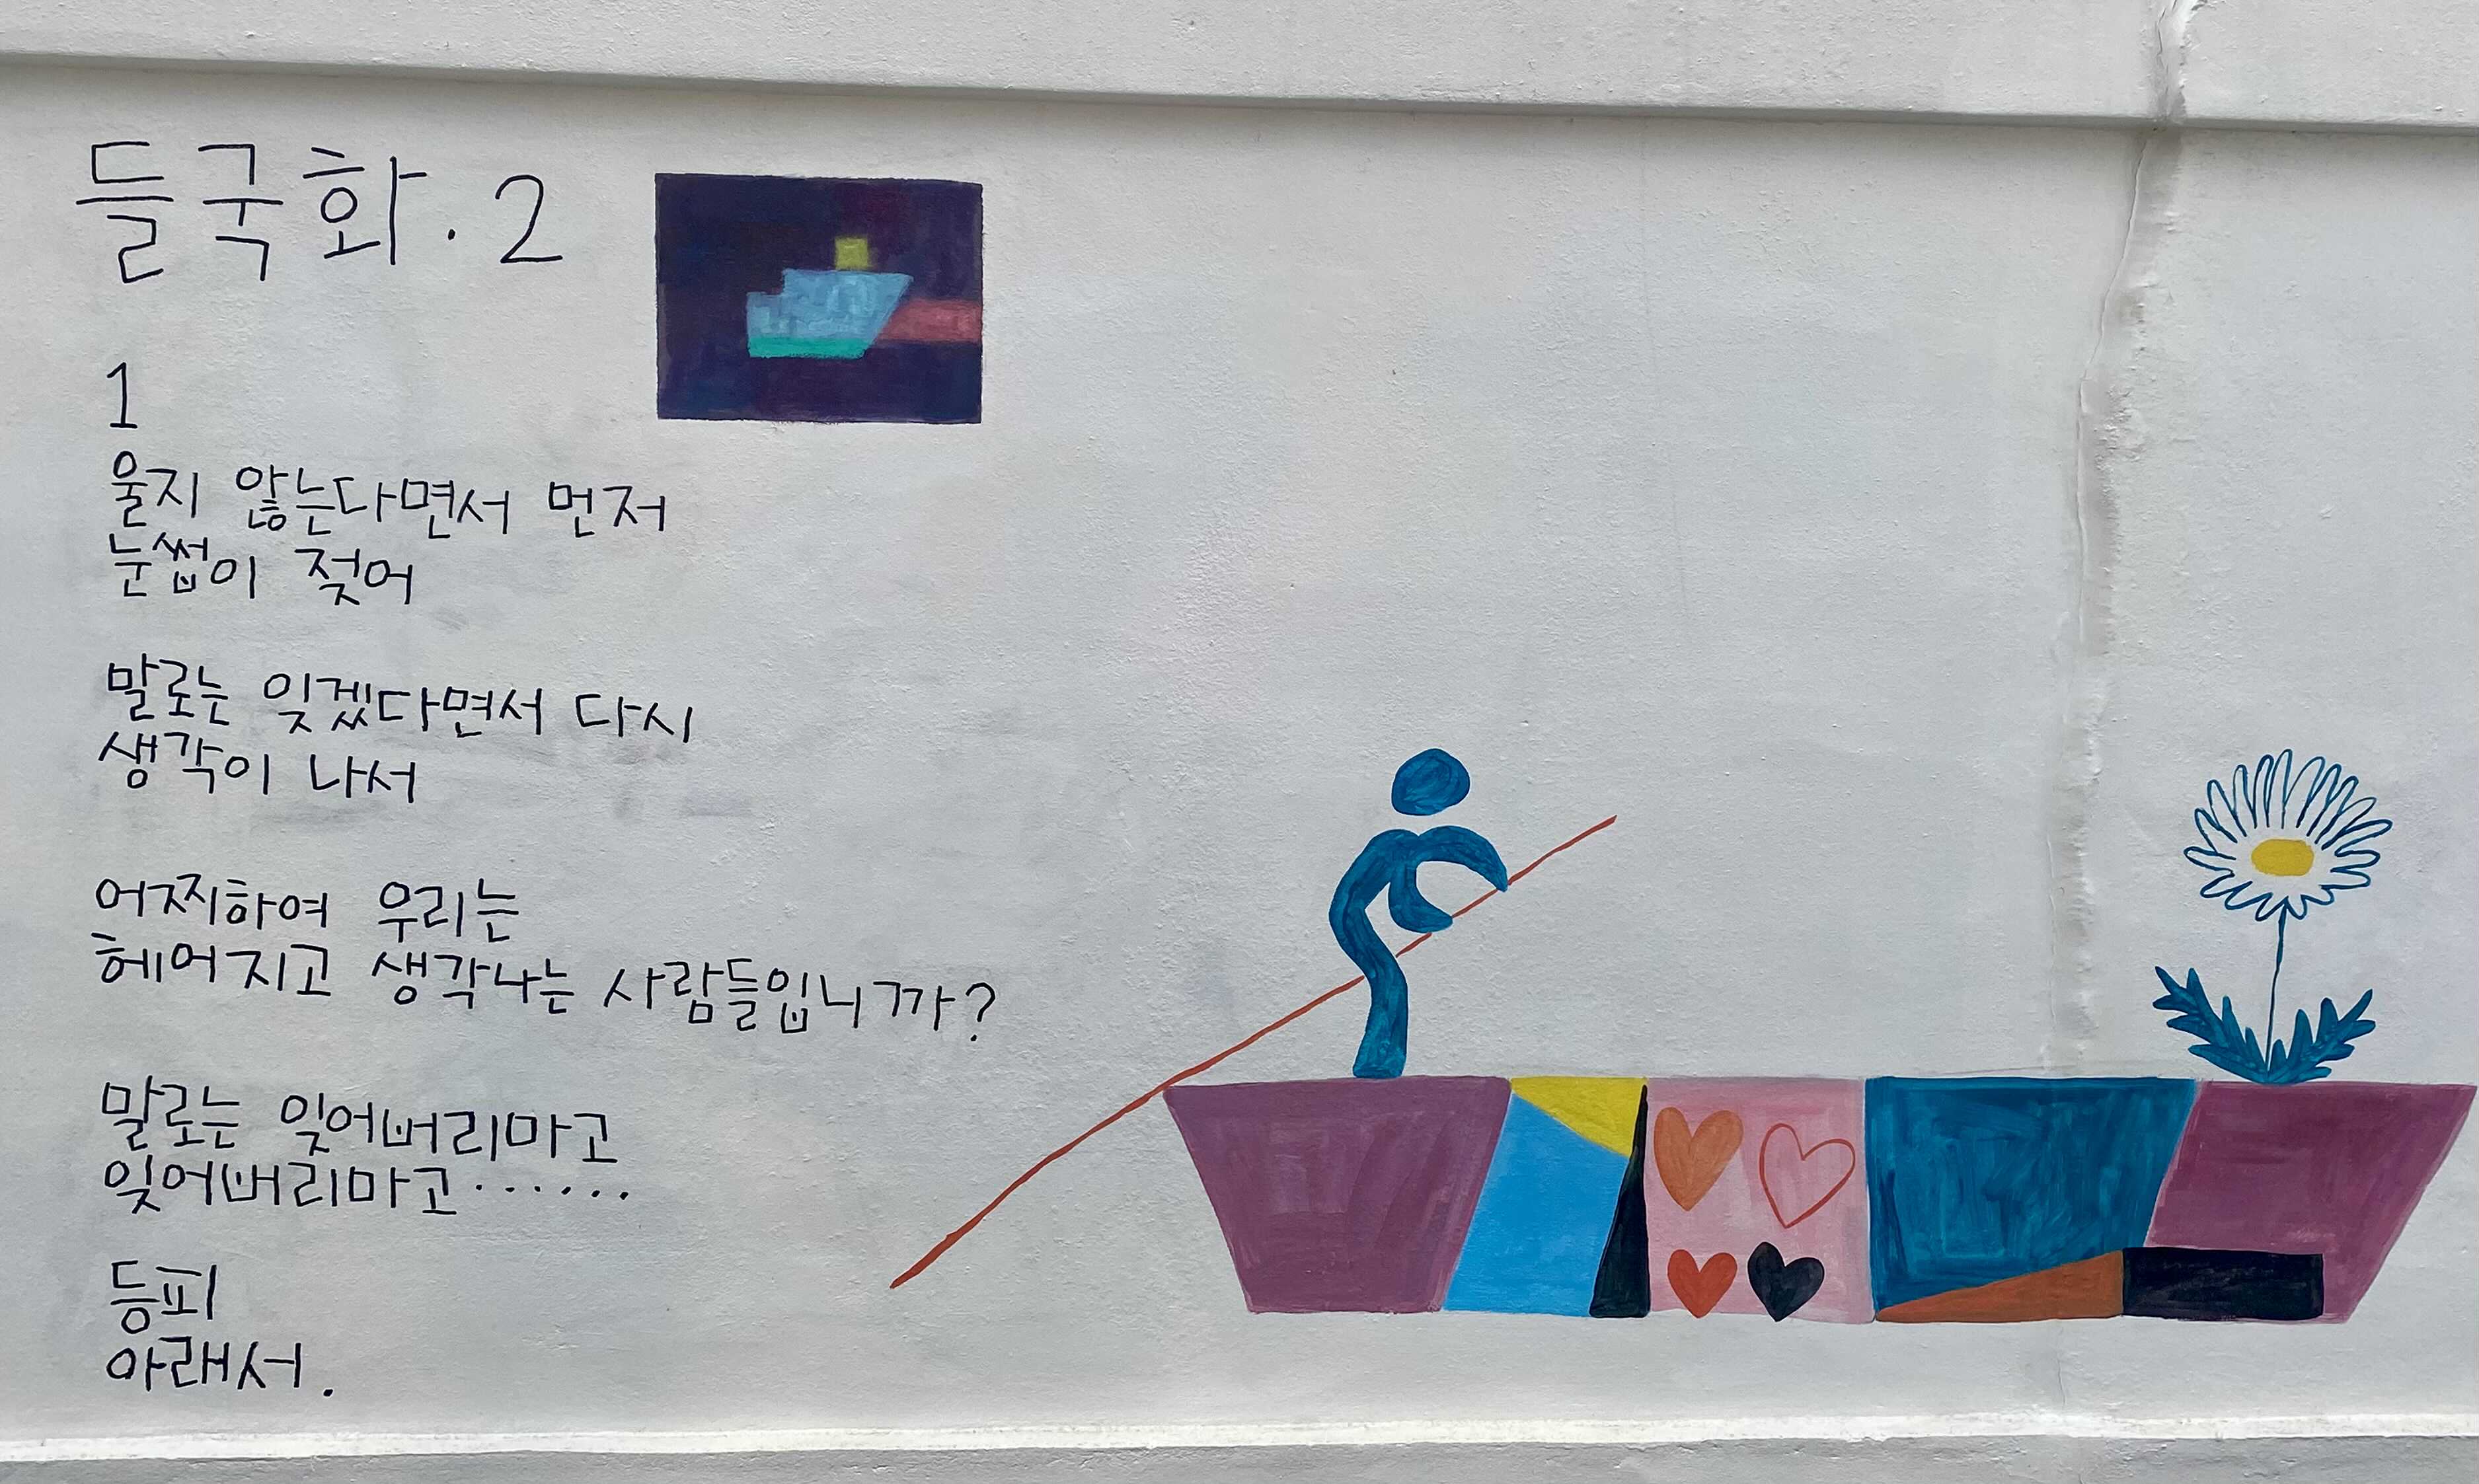 들국화. 2
1
울지 않는다면서 먼저
눈썹이 젖어
말로는 잊겠다면서 다시
생각이 나서
어찌하여 우리는
헤어지고 생각나는 사람들입니까?
말로는 잊어버리마고
잊어버리마고······
등피
아래서.